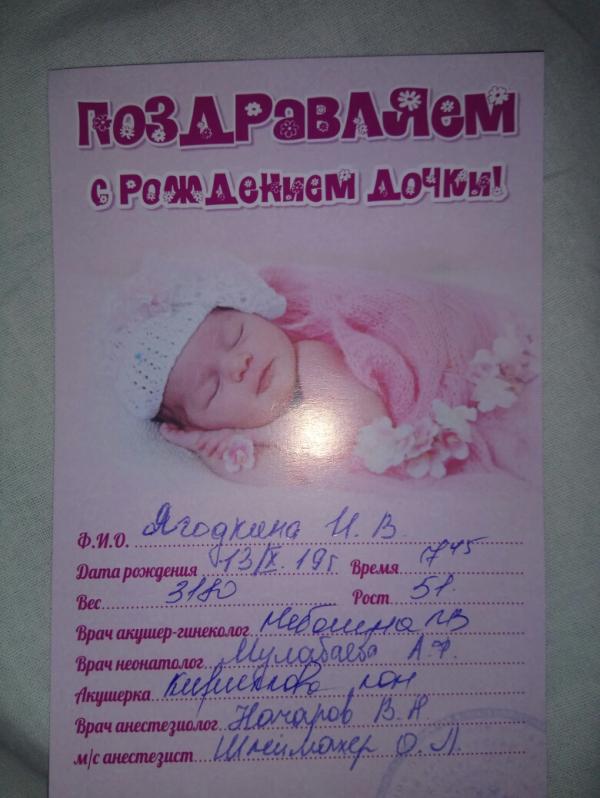 ПОЗДРАВЛЯЕМ
С РОЖДЕНИЕМ ДОЧКИ!
Ф.И.О. Ягодкина Н. В.
Дата рождения 13/IX. 19г Время 7 45
Вес 3180 Рост 51.
Врач акушер-гинеколог
Врач неонатолог Мулабаева А. Ф.
Акушерка
Врач анестезиолог Начаров В. А
м/с анестезист Шлеймахер О. Л.